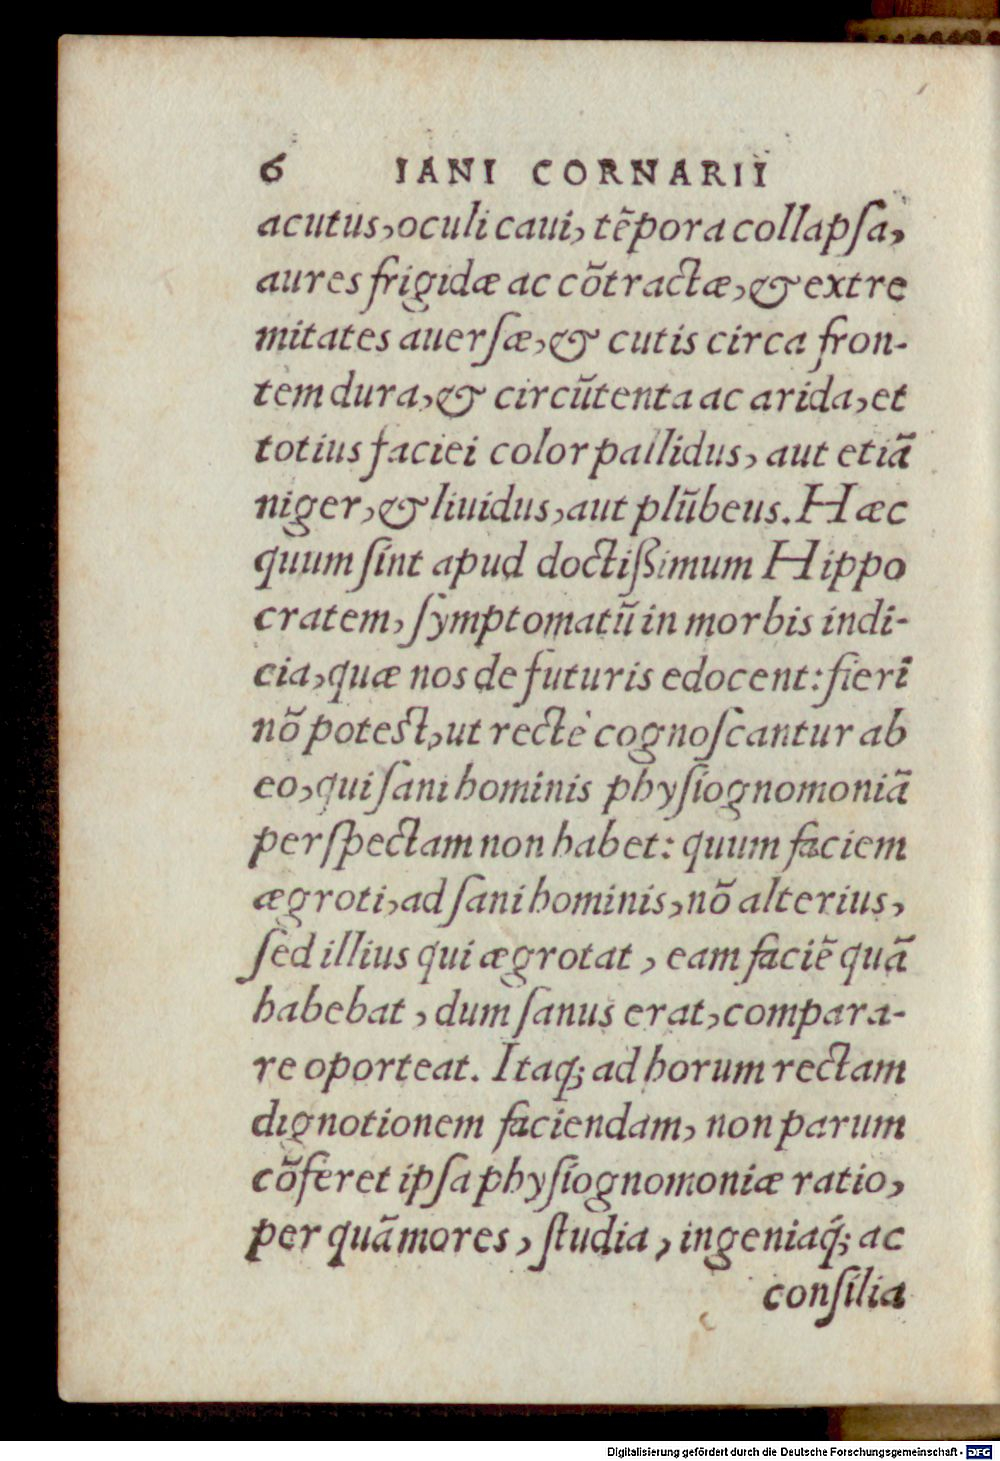 6 IANI CORNARII
acutus, oculi caui, tẽpora collapſa,
aures frigidæ ac cõtractæ, & extre
mitates auerſæ, & cutis circa fron-
tem dura, & circũtenta ac arida, et
totius faciei color pallidus, aut etiã
niger, & liuidus, aut plũbeus. Hæc
quum ſint apud doctißimum Hippo
cratem, ſymptomatũ in morbis indi-
cia, quæ nos de futuris edocent: fieri
nõ poteſt, ut rectè cognoſcantur ab
eo, qui ſani hominis phyſiognomoniã
perſpectam non habet: quum faciem
ægroti, ad ſani hominis, nõ alterius,
ſed illius qui ægrotat, eam faciẽ quã
habebat, dum ſanus erat, compara-
re oporteat. Itaq; ad horum rectam
dignotionem faciendam, non parum
cõferet ipſa phyſiognomoniæ ratio,
per quã mores, ſtudia, ingeniaq́; ac
conſilia
Digitalisierung gefördert durch die Deutsche Forschungsgemeinschaft - DFG